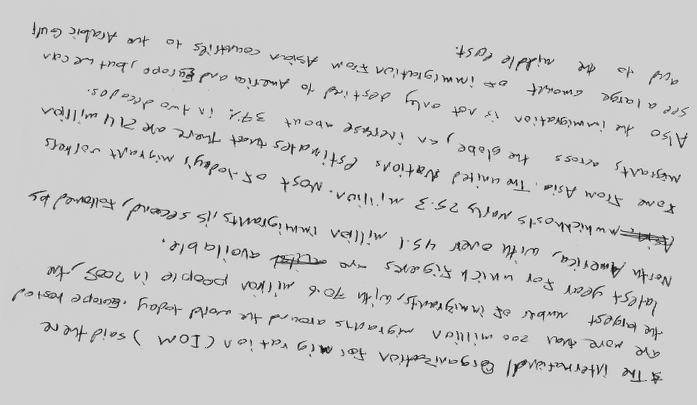 * The international Organization for migration (IOM) said there
are more than 200 million migrants around the world today. Europe hosted
the biggest number of immigrants, with 70.6 million people in 2005, the
latest year for which figures are available.
North America, with over 45.1 million immigrants, is second, followed by
Asia, which hosts nearly 25.3 million. Most of today's migrant workers
come from Asia. The united Nations Estimates that there are 214 million
migrants across the globe, an increase about 37% in two decades.
Also the immigration is not only destined to America and Europe, but we can
see a large amount of immigration from Asian countries to the Arabic Gulf
and to the middle East.